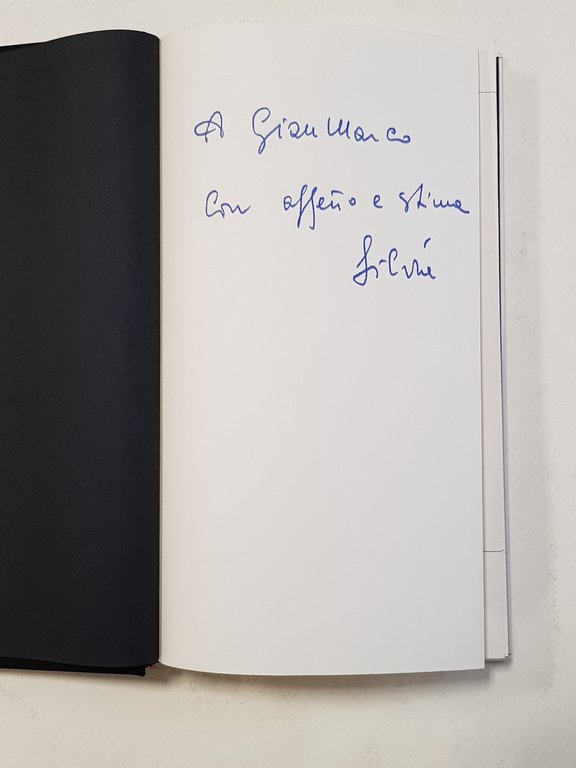 A GianMarco
con affetto e stima
Silvia